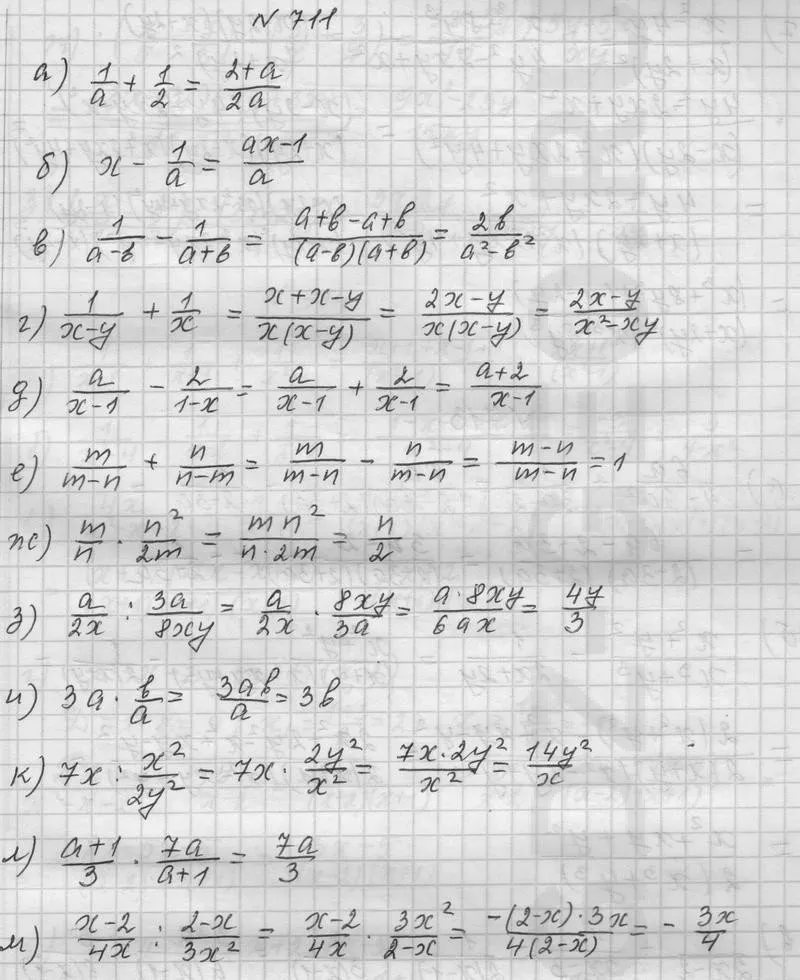 N 711
а) 1/a + 1/2 = (2+a)/(2a)
б) x - 1/a = (ax-1)/a
в) 1/(a-b) - 1/(a+b) = (a+b-a+b)/((a-b)(a+b)) = 2b/(a²-b²)
г) 1/(x-y) + 1/x = (x+x-y)/(x(x-y)) = (2x-y)/(x(x-y)) = (2x-y)/(x²-xy)
д) a/(x-1) - 2/(1-x) = a/(x-1) + 2/(x-1) = (a+2)/(x-1)
е) m/(m-n) + n/(n-m) = m/(m-n) - n/(m-n) = (m-n)/(m-n) = 1
ж) m/n · n²/(2m) = (mn²)/(n·2m) = n/2
з) a/(2x) : 3a/(8xy) = a/(2x) · 8xy/(3a) = (a·8xy)/(6ax) = 4y/3
и) 3a · b/a = 3ab/a = 3b
к) 7x : x²/(2y²) = 7x · 2y²/x² = (7x·2y²)/x² = 14y²/x
л) (a+1)/3 · 7a/(a+1) = 7a/3
м) (x-2)/(4x) : (2-x)/(3x²) = (x-2)/(4x) · 3x²/(2-x) = (-(2-x)·3x)/(4(2-x)) = - 3x/4